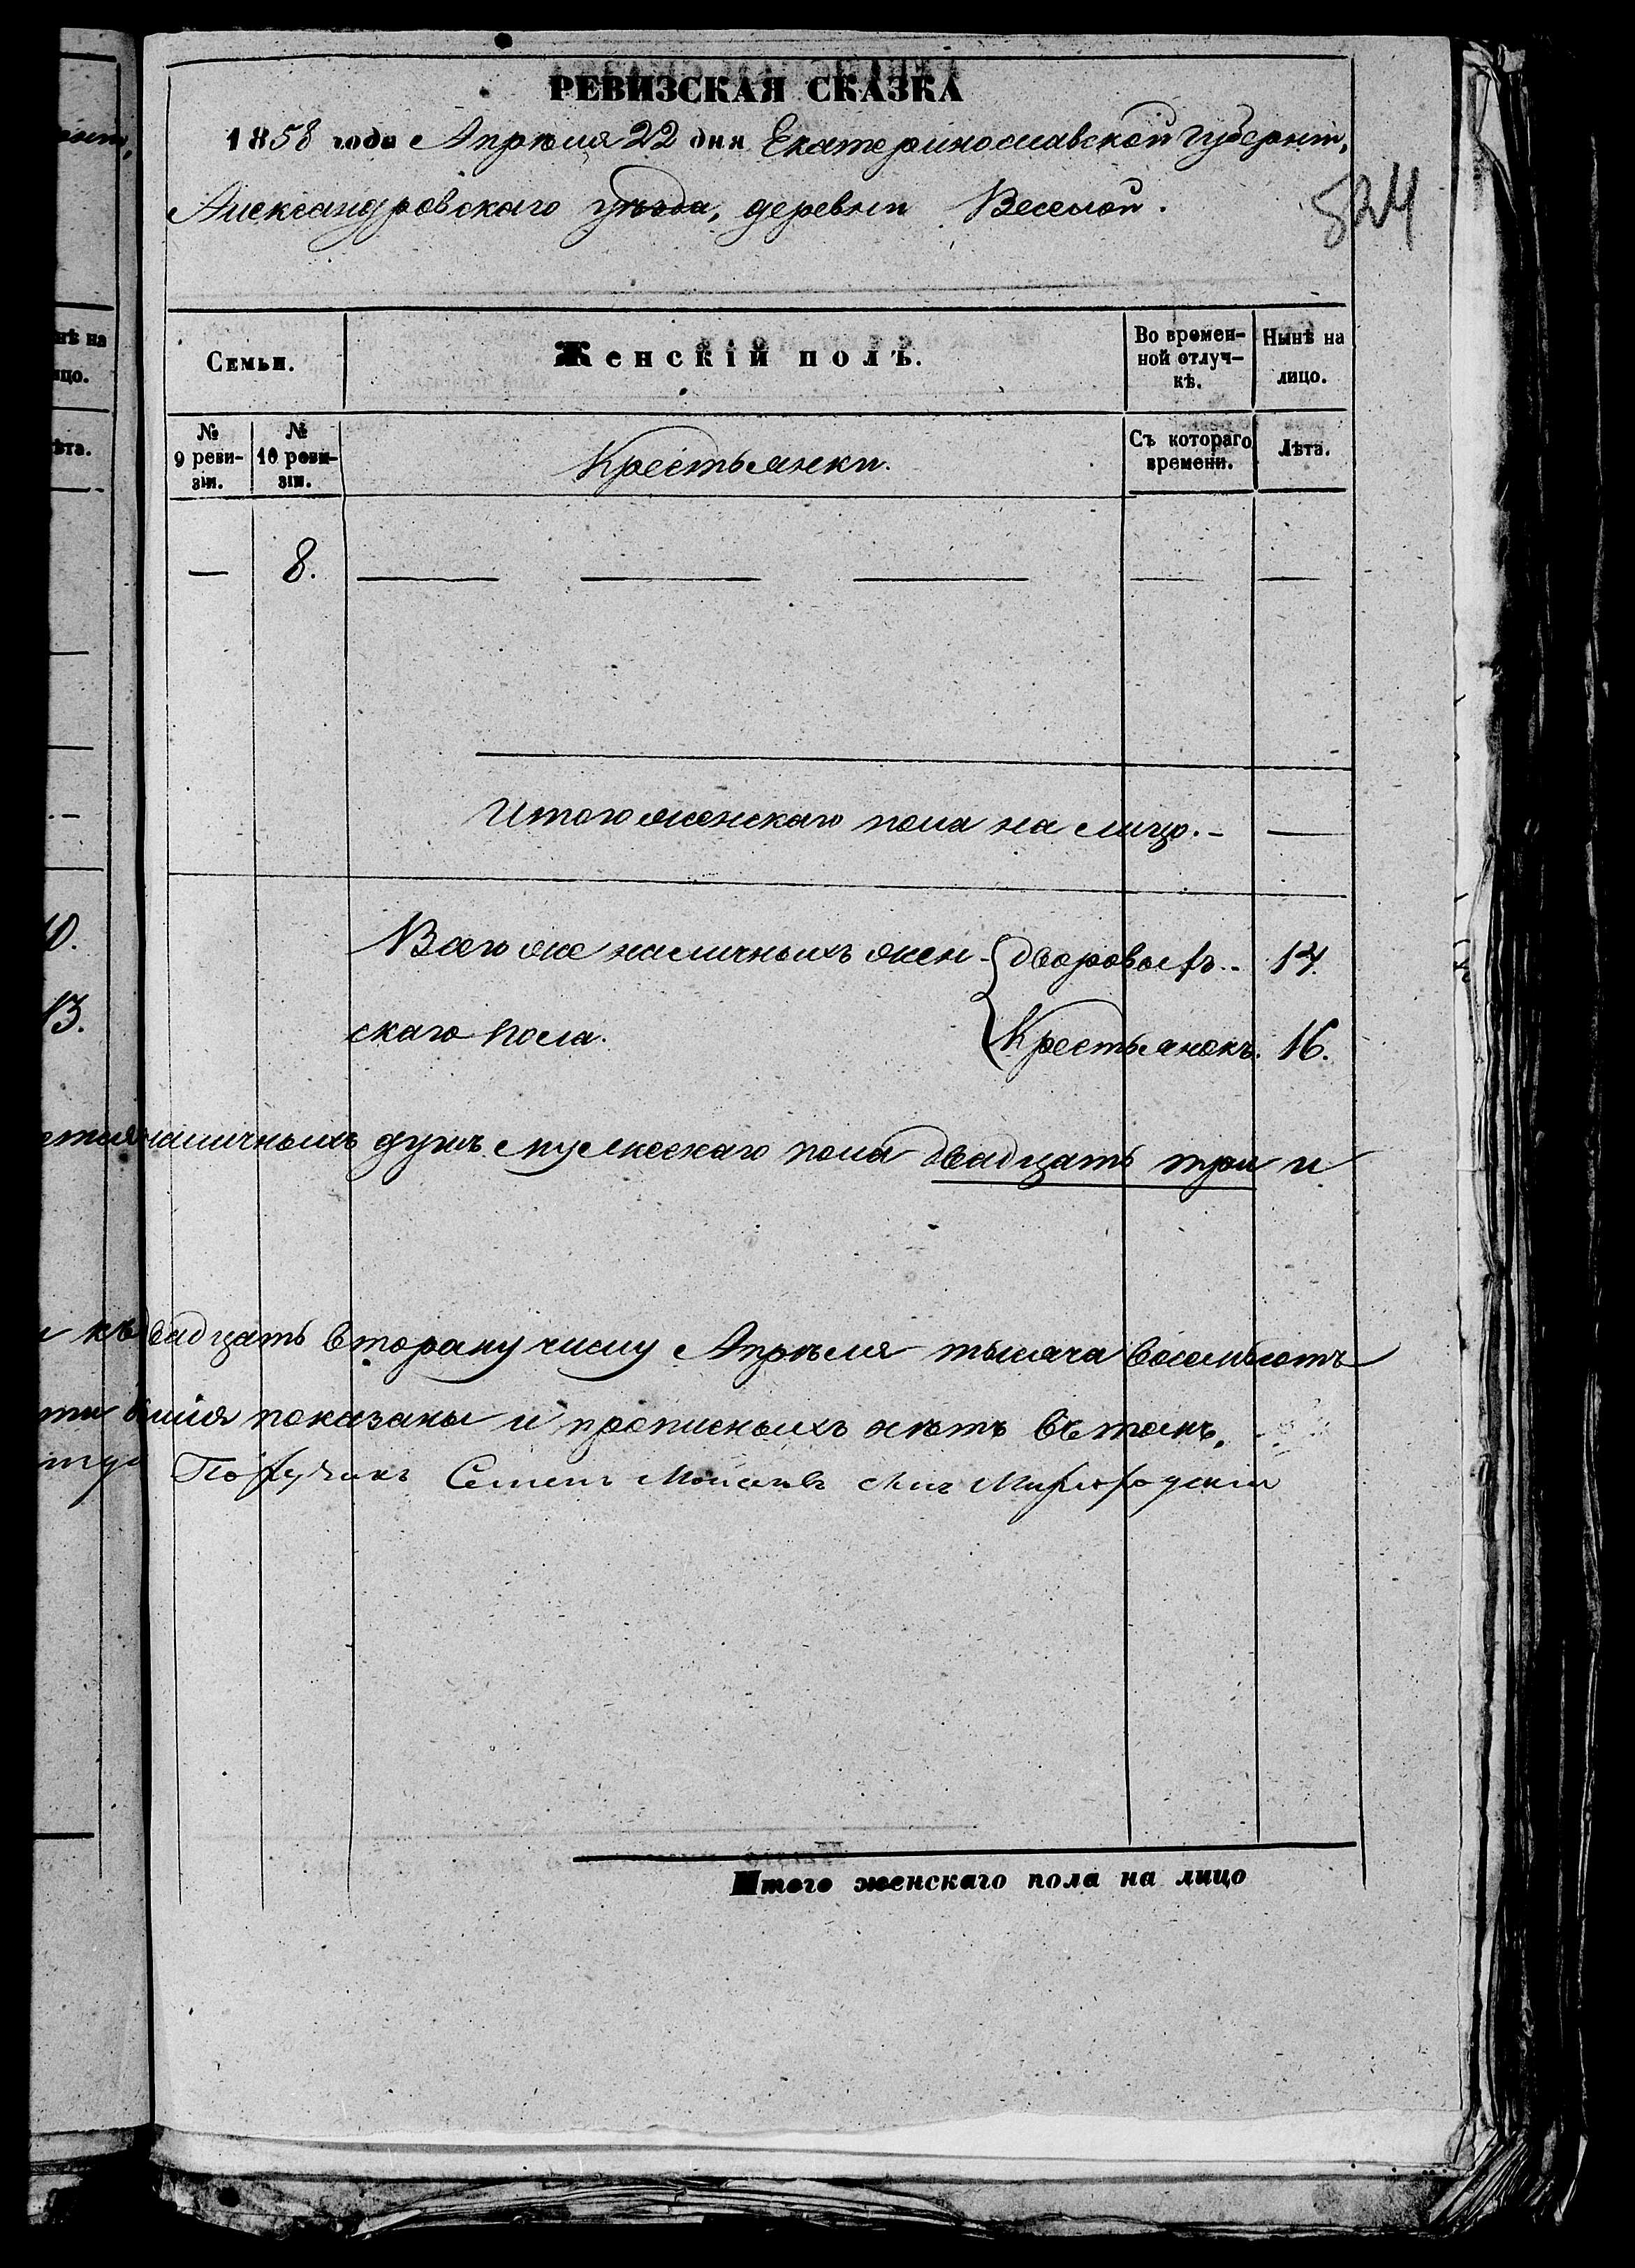 РЕВИЗСКАЯ СКАЗКА
1858 года Апрѣля 22 дня Екатеринославской губерніи,
Александровскаго уѣзда, деревни Веселой.
524
Семьи.
Женскій полъ.
Во времен-
ной отлуч-
кѣ.
Нынѣ на
лицо.
№
9 реви-
зіи.
№
10 реви-
зіи.
Крестьянки.
Съ котораго
времени.
Лѣта.
— 8. — — — — —
Итого женскаго пола на лицо. - —
Всего же наличныхъ жен- дворовыхъ.. 14.
скаго пола. Крестьянокъ. 16.
наличныхъ душъ мужескаго пола двадцать три и
къ двадцать второму числу Апрѣля тысяча восемьсотъ
показаны и прописныхъ нѣтъ въ томъ,
Поручикъ Семенъ Моисеевъ Миргородскій
Итого женскаго пола на лицо
нѣ на
цо.
ѣта.
10.
13.